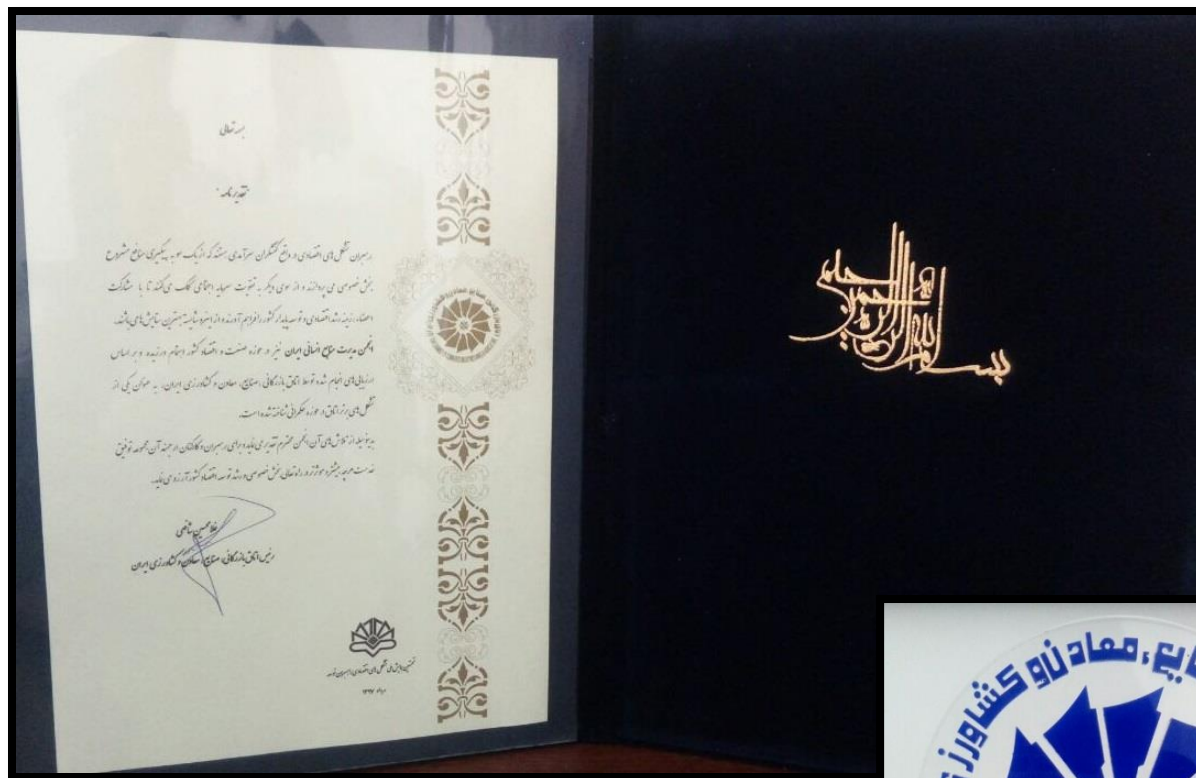 بسمه تعالی
"تقدیرنامه"
رهبران تشکل های اقتصادی در واقع کنشگران سرآمدی هستند که از یک سو به پیگیری منافع مشروع
بخش خصوصی می پردازند و از سوی دیگر به تقویت سرمایه اجتماعی کمک می کنند تا با مشارکت
اعضاء، زمینه رشد اقتصادی و توسعه پایدار کشور را فراهم آورند و از اینرو شایسته بهترین ستایش های باشند.
انجمن مدیریت منابع انسانی ایران نیز در حوزه صنعت و اقتصاد کشور اهتمام ورزیده و بر اساس
ارزیابی های انجام شده توسط اتاق بازرگانی، صنایع، معادن و کشاورزی ایران، به عنوان یکی از
تشکل های برتر اتاق در حوزه حکمرانی شناخته شده است.
بدینوسیله از تلاش های آن انجمن محترم تقدیر می نماید و برای رهبران و کارکنان ارجمند آن مجموعه توفیق
خدمت هرچه بیشتر و موثرتر در راه تعالی بخش خصوصی و رشد توسعه اقتصاد کشور آرزو می نماید.
غلامحسین شافعی
رئیس اتاق بازرگانی، صنایع، معادن و کشاورزی ایران
نخستین همایش ملی تشکل های اقتصادی، راهبران توسعه
مرداد ۱۳۹۷
بسم الله الرحمن الرحیم
معادن و کشاورزی